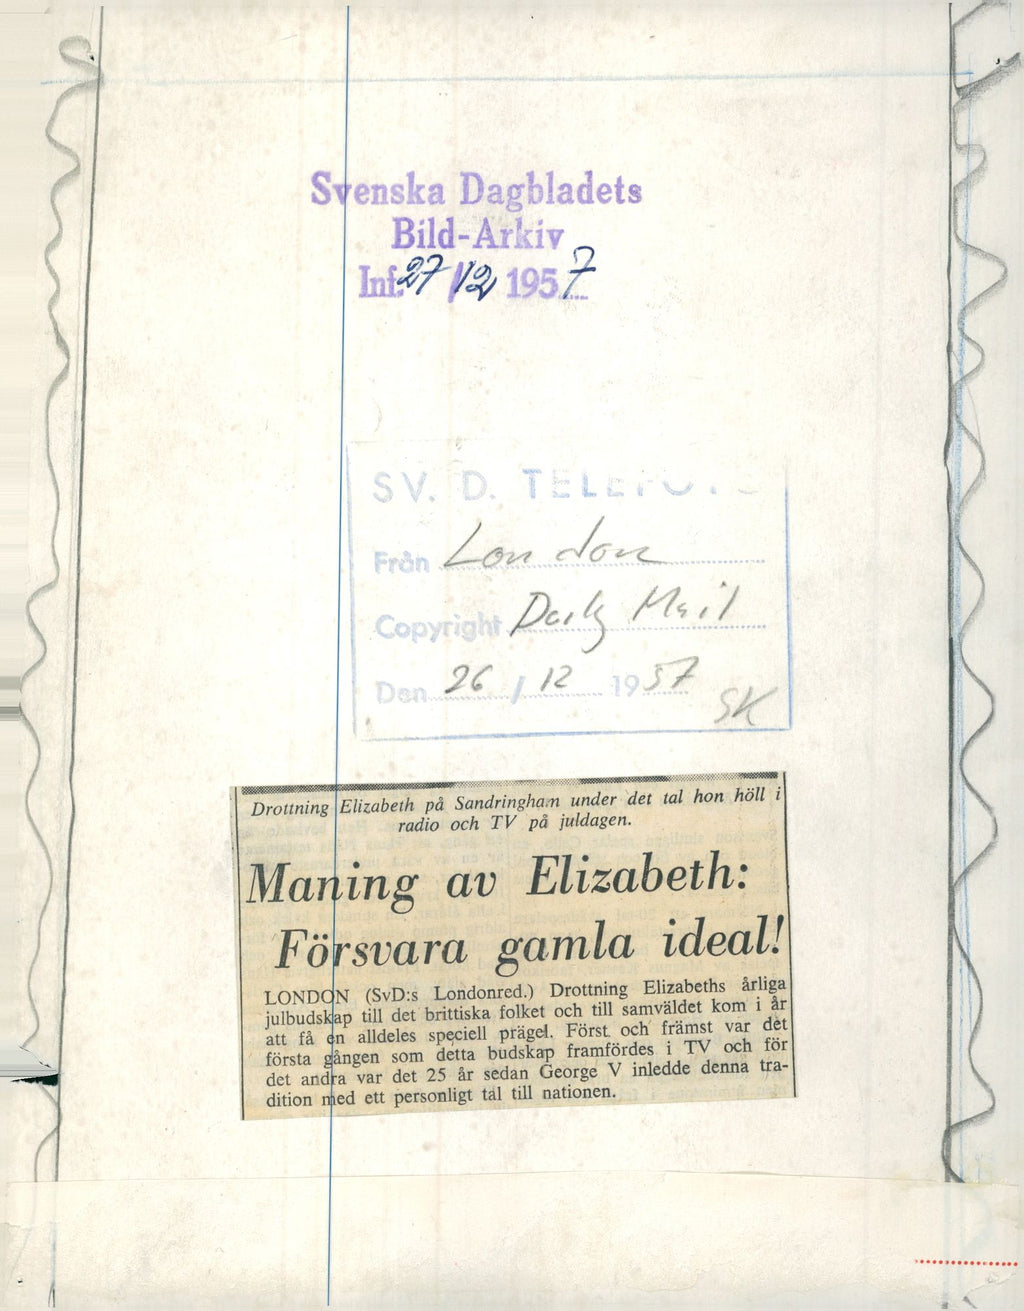 Svenska Dagbladets
Bild-Arkiv
Inf. 27/12 1957
SV. D. TELEFOTO
Från London
Copyright Daily Mail
Den 26 / 12 1957
SK
Drottning Elizabeth på Sandringham under det tal hon höll i
radio och TV på juldagen.
Maning av Elizabeth:
Försvara gamla ideal!
LONDON (SvD:s Londonred.) Drottning Elizabeths årliga
julbudskap till det brittiska folket och till samväldet kom i år
att få en alldeles speciell prägel. Först och främst var det
första gången som detta budskap framfördes i TV och för
det andra var det 25 år sedan George V inledde denna tra-
dition med ett personligt tal till nationen.